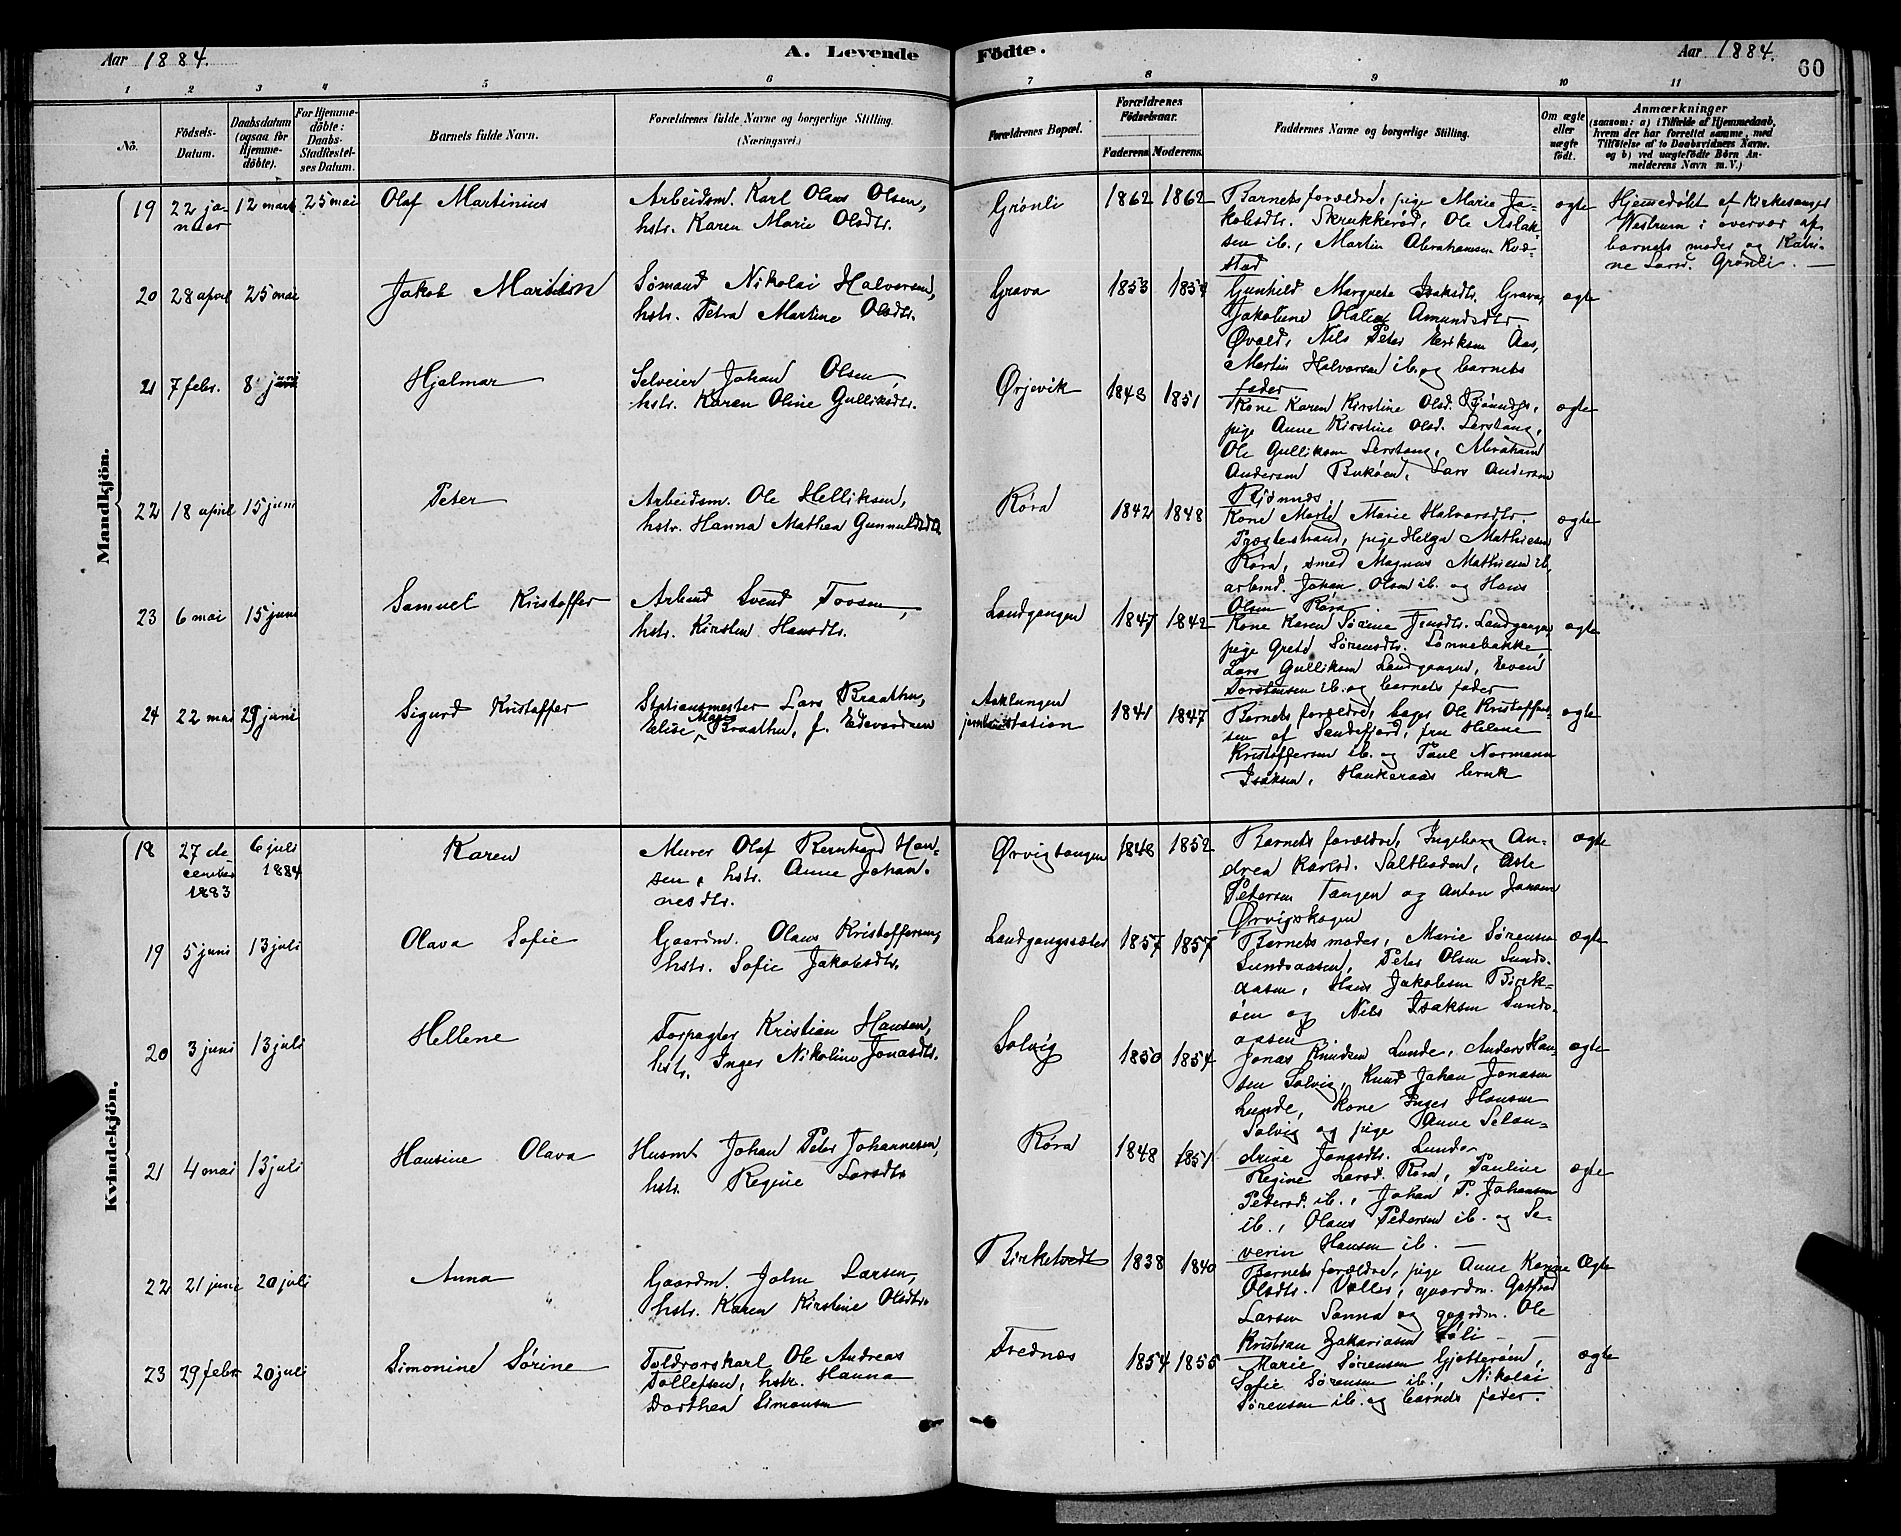 Aar 1884.
A. Levende Födte.
Aar 1884.
60
1 2 3 4 5 6 7 8 9 10 11
No.
Födsels-Datum.
Daabsdatum (ogsaa for Hjemme-döbte).
For Hjemme-döbte: Daabs-Stadfestel-ses Datum.
Barnets fulde Navn.
Forældrenes fulde Navne og borgerlige Stilling. (Næringsvei.)
Forældrenes Bopæl.
Forældrenes Födselsaar.
Faderens. Moderens.
Faddernes Navne og borgerlige Stilling.
Om ægte eller uægte födt.
Anmærkninger
(saasom: a) i Tilfælde af Hjemmedaab, hvem der har forrettet samme, med Tilföielse af to Daabsvidners Navne. og b) ved uægtefödte Börn An-melderens Navn m. V.)
Mandkjön.
19
22 ja-
nuar
12 mars
25 mai
Olaf Martinius
Arbeidsm. Karl Olaus Olsen,
hstr. Karen Marie Olsdtr.
Grönli
1862 1862
Barnets forældre, pige Marie Ja-
kobsdtr. Skrukkeröd, Ole Aslak-
sen ib., Martin Abrahamsen Kvæ-
stad
ægte
Hjemedöbt af Kirkesanger
Westrum i overvær af
barnets moder og Katri-
ne Larsd. Grönli. —
20
28 april
25 mai
Jakob Martin
Sömand Nikolai Halvorsen,
hstr. Petra Martine Olsdtr.
Grava
1853 1854
Gunhild Margrete Isaksdtr. Grava,
Jakobine Olalia Amundsdtr.
Øvald, Nils Peter Eriksen Aas,
Martin Halvorsen ib. og barnets
fader
ægte
21
7 febr.
8 juni
Hjalmar
Selveier Johan Olsen,
hstr. Karen Oline Gulliksdtr.
Ørjevik
1848 1851
Kone Karen Kirstine Olsd. Bjönnes,
pige Anne Kirstine Olsd. Serstang,
Ole Gulliksen Serstang, Abraham
Andersen Buköen, Lars Andersen
Bjönnes
ægte
22
18 april
15 juni
Peter
Arbeidsm. Ole Helliksen,
hstr. Hanna Mathea Gunnulfsdtr.
Röra
1842 1848
Kone Marte Marie Halvorsdtr.
Trosterstrand, pige Helga Mathisen
Röra, smed Magnus Mathisen ib,
arbmd. Johan Olsen ib. og Hans
Olsen Röra
ægte
23
6 mai
15 juni
Samuel Kristoffer
Arbmd Svend Tovsen,
hstr. Kirsten Hansdtr.
Landgangen
1847 1842
Kone Karen Sörine Jensdtr. Landgangen
pige Grete Sörensdtr. Sönnebakke,
Lars Gulliksen Landgangen, Even
Torstensen ib. og barnets fader
ægte
24
22 mai
29 juni
Sigurd Kristoffer
Stationsmester Lars Braathen,
Elise Marie Braathen, f. Edvardsen
Aaklungen
jernbanestation
1841 1847
Barnets forældre, bager Ole Kristoffer-
sen af Sandefjord, fru Helene
Kristoffersen ib. og Paul Normann
Isaksen, Haukeraas bruk
ægte
Kvindekjön.
18
27 de
cember
1883
6 juli
1884
Karen
Murer Olaf Bernhard Han-
sen, hstr. Anne Johan-
nesdtr.
Ørvigtangen
1848 1852
Barnets forældre, Ingeborg An-
drea Karlsd. Saltboden, Asle
Petersen Tangen og Anton Jansen
Ørvigskogen
ægte
19
5 juni
13 juli
Olava Sofie
Gaardm. Olaus Kristoffersen,
hstr. Sofie Jakobsdtr.
Landgangssæter
1857 1857
Barnets moder, Marie Sörensen
Sundsaasen, Peter Olsen Sunds-
aasen, Hans Jakobsen Birk-
öen og Nils Isaksen Sunds-
aasen
ægte
20
3 juni
13 juli
Hellene
Forpagter Kristian Hansen,
hstr. Inger Nikoline Jonasdtr.
Solvig
1850 1854
Jonas Knudsen Lunde, Anders Han-
sen Solvig, Knud Johan Jonasen
Lunde, Kone Inger Hansen
Solvig og pige Anne Selan-
drine Jonasdtr. Lunde
ægte
21
4 mai
13 juli
Hansine Olava
Husmd Johan Peter Johannesen,
hstr. Regine Larsdtr.
Röra
1848 1851
Regine Larsd. Röra, Pauline
Petersd. ib., Johan P. Johansen
ib., Olaus Pedersen ib. og Se-
verin Hansen ib. —
ægte
22
21 juni
20 juli
Anna
Gaardm. John Larsen,
hstr. Karen Kirstine Olsdtr.
Birketvedt
1838 1840
Barnets forældre, pige Anne Karine
Olsdtr. Valler, gaardm. Gotfred
Larsen Sanna og gaardm. Ole
Kristian Zakariasen Löli —
Ægte
23
29 febr
20 juli
Simonine Sörine
Toldrorskarl Ole Andreas
Tollefsen, hstr. Hanna
Dorthea Simonsen
Frednæs
1854 1855
Marie Sörensen Gjötteröen,
Sofie Sörensen ib., Nikolai
Sörensen ib. og barnets fader.
ægte